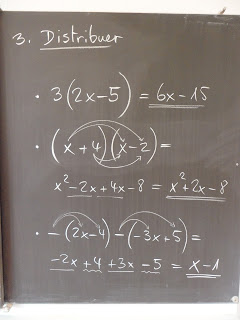 3. Distribuer
· 3(2x-5) = 6x-15
· (x+4)(x-2)=
x²-2x+4x-8 = x²+2x-8
· -(2x-4)-(-3x+5)=
-2x+4+3x-5 = x-1